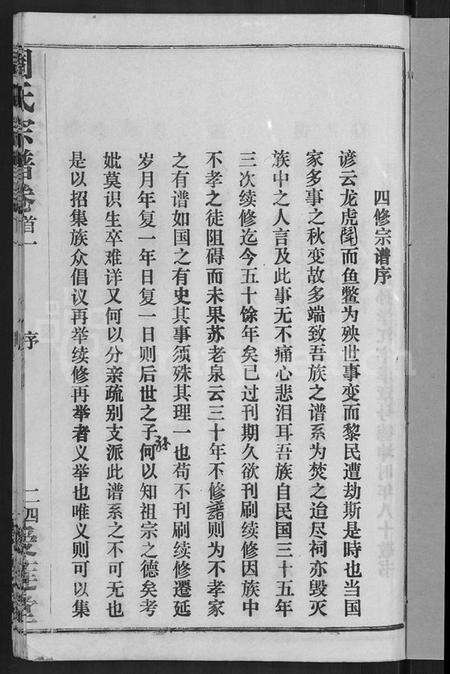 四修宗谱序
谚云龙虎鬪而鱼鳖为殃世事变而黎民遭劫斯是時也当国
家多事之秋变故多端致吾族之谱系为焚之迨尽祠亦毁灭
族中之人言及此事无不痛心悲泪耳吾族自民国三十五年
三次续修迄今五十馀年矣已过刊期久欲刊刷续修因族中
不孝之徒阻碍而未果苏老泉云三十年不修譜则为不孝家
之有谱如国之有史其事须殊其理一也苟不刊刷续修遷延
岁月年复一年日复一日则后世之子孙何以知祖宗之德矣考
妣莫识生卒难详又何以分亲疏别支派此谱系之不可无也
是以招集族众倡议再举续修再举者义举也唯义则可以集
周氏宗谱卷首一
序
一四
爱莲堂